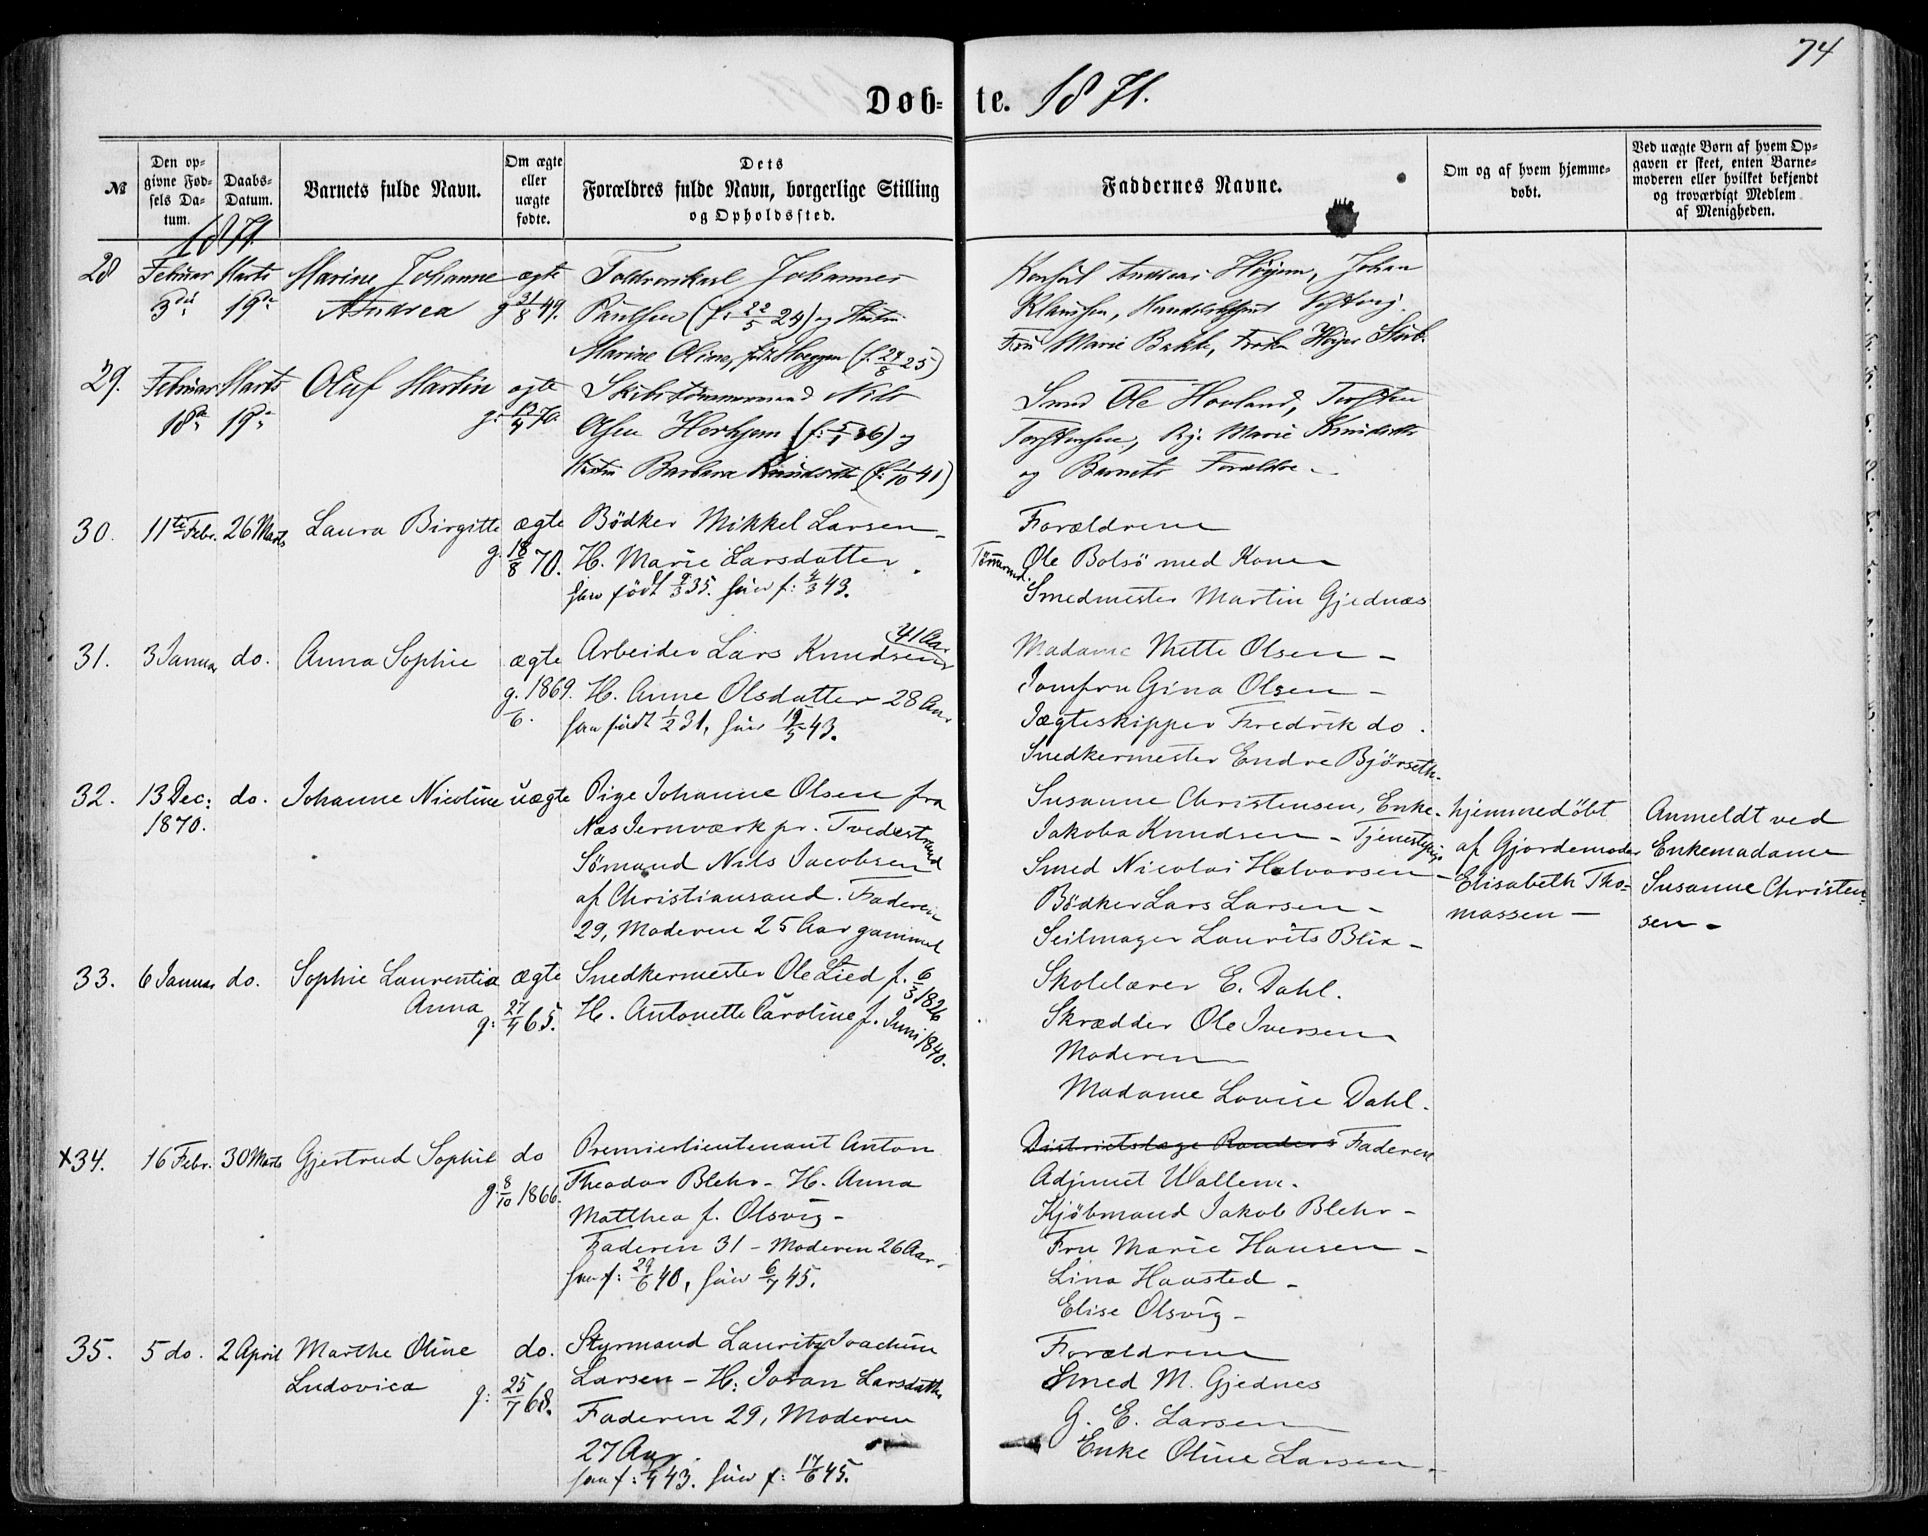 74
Døb-te. 1871.
№
Den op-
givne Fød-
sels Da-
tum.
Daabs-
Datum.
Barnets fulde Navn.
Om ægte
eller
uægte
fødte.
Dets
Forældres fulde Navn, borgerlige Stilling
og Opholdssted.
Faddernes Navne.
Om og af hvem hjemme-
døbt.
Ved uægte Børn af hvem Op-
gaven er skeet, enten Barne-
moderen eller hvilket bekjendt
og troværdigt Medlem
af Menigheden.
1871.
28 Februar Marts Marine Johanne ægte Johannes
3die 19de Andrea g 31/8 49. (f: 22/5 24) og
Marine Oline, (f. 24/8 25)
Konsul Andreas Johan
Fru Marie
29. Februar Marts Oluf Martin ægte Skibstømmermand Nils
18de 19de g: 70. Olsen (f: 5/1 36) og
Barbara Knudsdtr (f: 1/10 41)
Smed Ole Hovland, Torsten
Torstensen, Marie Knudsdtr
og Barnets Forældre
30. 11te Febr. 26 Marts Laura Birgitte ægte Bødker Mikkel Larsen
g. 18/8 70. H. Marie Larsdatter.
han født 9/3 35. hun f: 4/3 43.
Forældrene
Tømmermd. Ole Bolsø med Kone
Smedmester Martin Gjednæs
31. 3 Januar do. Anna Sophie ægte Arbeider Lars Knudsen 41 Aar
g. 1869. H. Anne Olsdatter 28 Aar
6. han født 1/2 31, hun 19/3 43.
Madame Mette Olsen -
Jomfru Gina Olsen -
Jægteskipper Fredrik do.
Snedkermester Endre Bjørseth.
32. 13 Dec: do. Johanne Nicoline uægte Pige Johanne Olsen fra
1870. Næs Jernværk pr. Tvedestrand
Sømand Nils Jacobsen
af Christiansand. Faderen
29, Moderen 25 Aar gammel
Susanne Christensen, Enke.
Jakoba Knudsen - Tjenestepige
Smed Nicolai Halvorsen -
Bødker Lars Larsen -
Seilmager Laurits Blix -
hjemmedøbt
af Gjordemoder
Elisabeth Tho-
massen -
Anmeldt ved
Enkemadame
Susanne Christen-
sen -
33. 6 Januar do. Sophie Laurentia ægte Snedkermester Ole Lied f. 6/3 1826
Anna g: 27/4 65. H. Antonette Caroline f. Juni 1840.
Skolelærer E. Dahl.
Skrædder Ole Iversen
Moderen
Madame Lovise Dahl.
x34. 16 Febr. 30 Marts Gjertrud Sophie do Premierlieutenant Anton
g: 8/10 1866. Theodor Blehr - H. Anna
Matthea f. Olsvig -
Faderen 31 - Moderen 26 Aar -
han f: 29/6 40, hun 6/7 45.
Districtslæge Randers Faderen
Adjunct Wallem.
Kjøbmand Jakob Blehr -
Fru Marie Hansen -
Lina Haasted -
Elise Olsvig -
35. 5 do. 2 April Marthe Oline do. Styrmand Lauritz Joachim
Ludovica g: 25/7 68. Larsen - H: Joran Larsdatter
Faderen 29, Moderen
27 Aar.
han f: 43. hun f: 17/6 45.
Forældrene
Smed M. Gjednes
G. E. Larsen
Enke Oline Larsen -